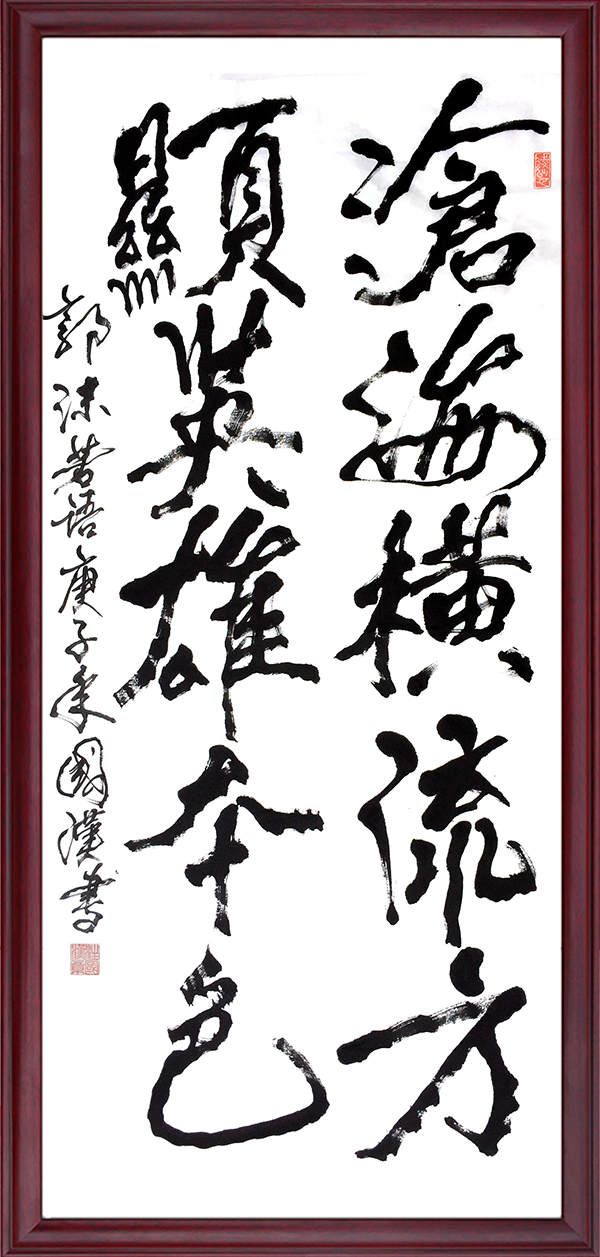 滄海橫流方
顯英雄本色
郭沫若語庚子年國漢書